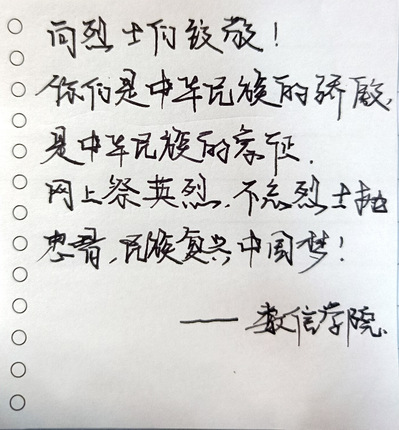 向烈士们致敬!
你们是中华民族的骄傲,
是中华民族的象征.
网上祭英烈,不忘烈士抛
忠骨,民族复兴中国梦!
——数信学院.